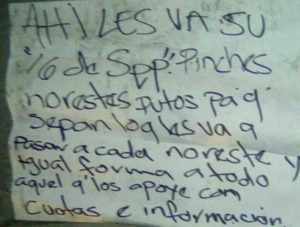 AHI LES VA SU
16 de Spp". Pinches
norestes putos pa q'
sepan loq les va a
Pasar a cada noreste y
igual forma a todo
aquel q' los apoye con
cuotas e información